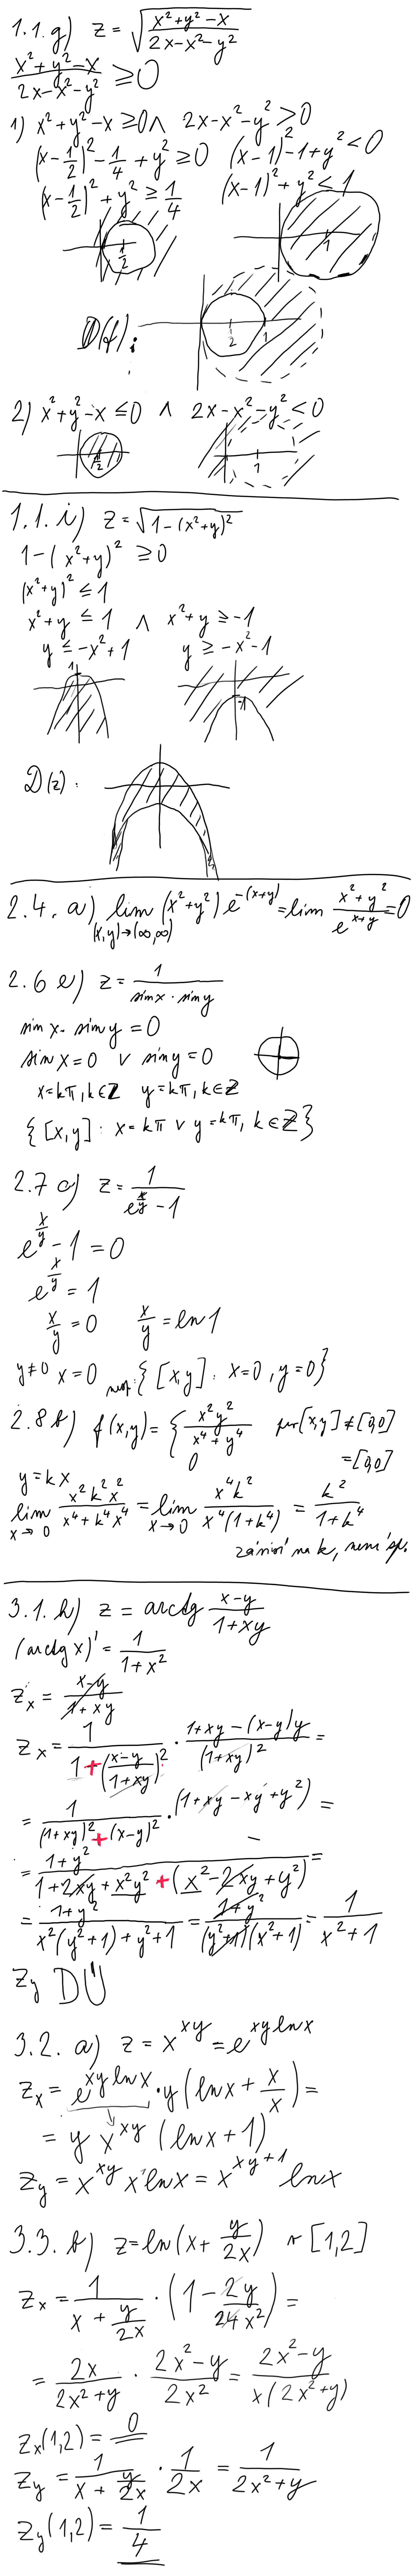 1.1. g) z = √((x²+y²-x)/(2x-x²-y²))
(x²+y²-x)/(2x-x²-y²) ≥ 0
1) x²+y²-x ≥ 0 ∧ 2x-x²-y² > 0
(x-1/2)² - 1/4 + y² ≥ 0 (x-1)² - 1 + y² < 0
(x-1/2)² + y² ≥ 1/4 (x-1)² + y² < 1
1/2 1
D(f): 1/2 1
2) x²+y²-x ≤ 0 ∧ 2x-x²-y² < 0
1/2 1
1.1. i) z = √(1-(x²+y)²)
1-(x²+y)² ≥ 0
(x²+y)² ≤ 1
x²+y ≤ 1 ∧ x²+y ≥ -1
y ≤ -x²+1 y ≥ -x²-1
1 -1
D(z):
2.4. a) lim (x,y)→(∞,∞) (x²+y²) e^(-(x+y)) = lim (x²+y²)/e^(x+y) = 0
2.6 e) z = 1/(sin x · sin y)
sin x · sin y = 0
sin x = 0 ∨ sin y = 0
x = kπ, k∈Z y = kπ, k∈Z
{[x,y]: x = kπ ∨ y = kπ, k∈Z}
2.7 c) z = 1/(e^(x/y) - 1)
e^(x/y) - 1 = 0
e^(x/y) = 1
x/y = 0 x/y = ln 1
y≠0 x = 0 {[x,y]: x = 0, y = 0}
2.8 b) f(x,y) = { x²y²/(x⁴+y⁴) pro [x,y] ≠ [0,0]
0 = [0,0]
y = kx
lim x→0 x²k²x²/(x⁴+k⁴x⁴) = lim x→0 x⁴k²/(x⁴(1+k⁴)) = k²/(1+k⁴)
závisí na k, není sp.
3.1. h) z = arctg (x-y)/(1+xy)
(arctg x)' = 1/(1+x²)
z_x = (x-y)/(1+xy)
z_x = 1/(1+((x-y)/(1+xy))²) · (1+xy-(x-y)y)/(1+xy)² =
= 1/((1+xy)²+(x-y)²) · (1+xy-xy+y²) =
= (1+y²)/(1+2xy+x²y²+(x²-2xy+y²)) =
= (1+y²)/(x²(y²+1)+y²+1) = (1+y²)/((y²+1)(x²+1)) = 1/(x²+1)
z_y DÚ
3.2. a) z = x^(xy) = e^(xy ln x)
z_x = e^(xy ln x) · y(ln x + x/x) =
= y x^(xy) (ln x + 1)
z_y = x^(xy) x ln x = x^(xy+1) ln x
3.3. b) z = ln(x + y/2x) v [1,2]
z_x = 1/(x + y/2x) · (1 - 2y/(4x²)) =
= 2x/(2x²+y) · (2x²-y)/(2x²) = (2x²-y)/(x(2x²+y))
z_x(1,2) = 0
z_y = 1/(x + y/2x) · 1/2x = 1/(2x²+y)
z_y(1,2) = 1/4